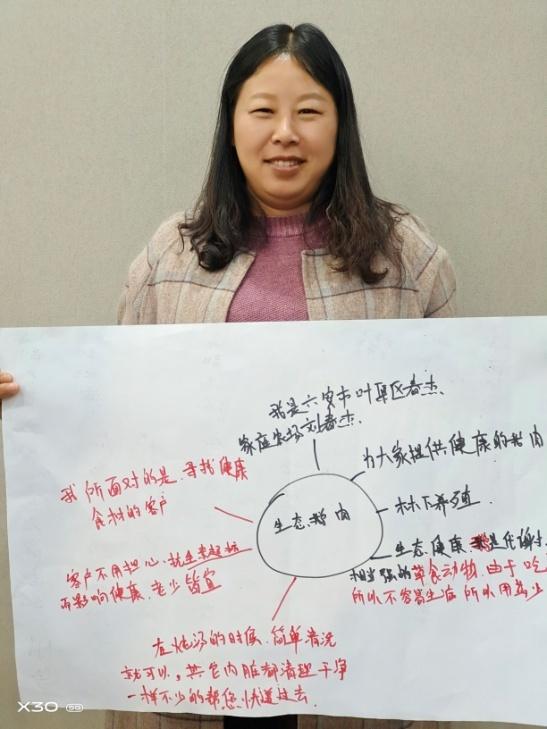 我是六安市叶集区春杰
家庭农场刘春杰.
为大家提供健康的鹅肉
我所面对的是.寻找健康
食材的客户
生态鹅肉
林下养殖.
生态健康.是代谢
客户不用担心.
而影响健康.老少皆宜
相当强的草食动物.由于吃
所以不容易生病 所以用药少
在炖汤的时候.简单清洗
就可以,其它内脏都清理干净
一样不少的帮您快递过去.
X30 5G